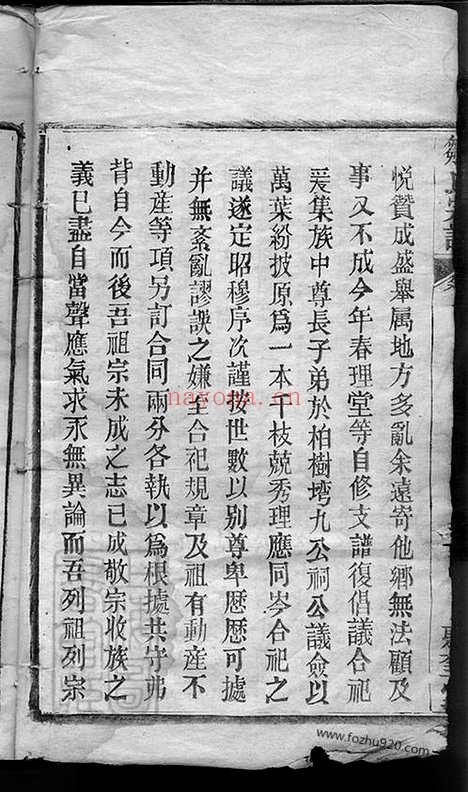 悅贊成盛舉属地方多亂余遠寄他鄉無法顧及
事又不成今年春理堂等自修支譜復倡議合祀
爰集族中尊長子弟於柏樹塆九公祠公議僉以
萬葉紛披原爲一本千枝競秀理應同岑合祀之
議遂定昭穆序次謹按世數以别尊卑歷歷可據
并無紊亂謬誤之嫌至合祀規章及祖有動產不
動産等項另訂合同兩分各執以爲根據共守弗
背自今而後吾祖宗未成之志已成敬宗收族之
義已盡自當聲應氣求永無異論而吾列祖列宗
nayona.cn
www.fozhu920.com